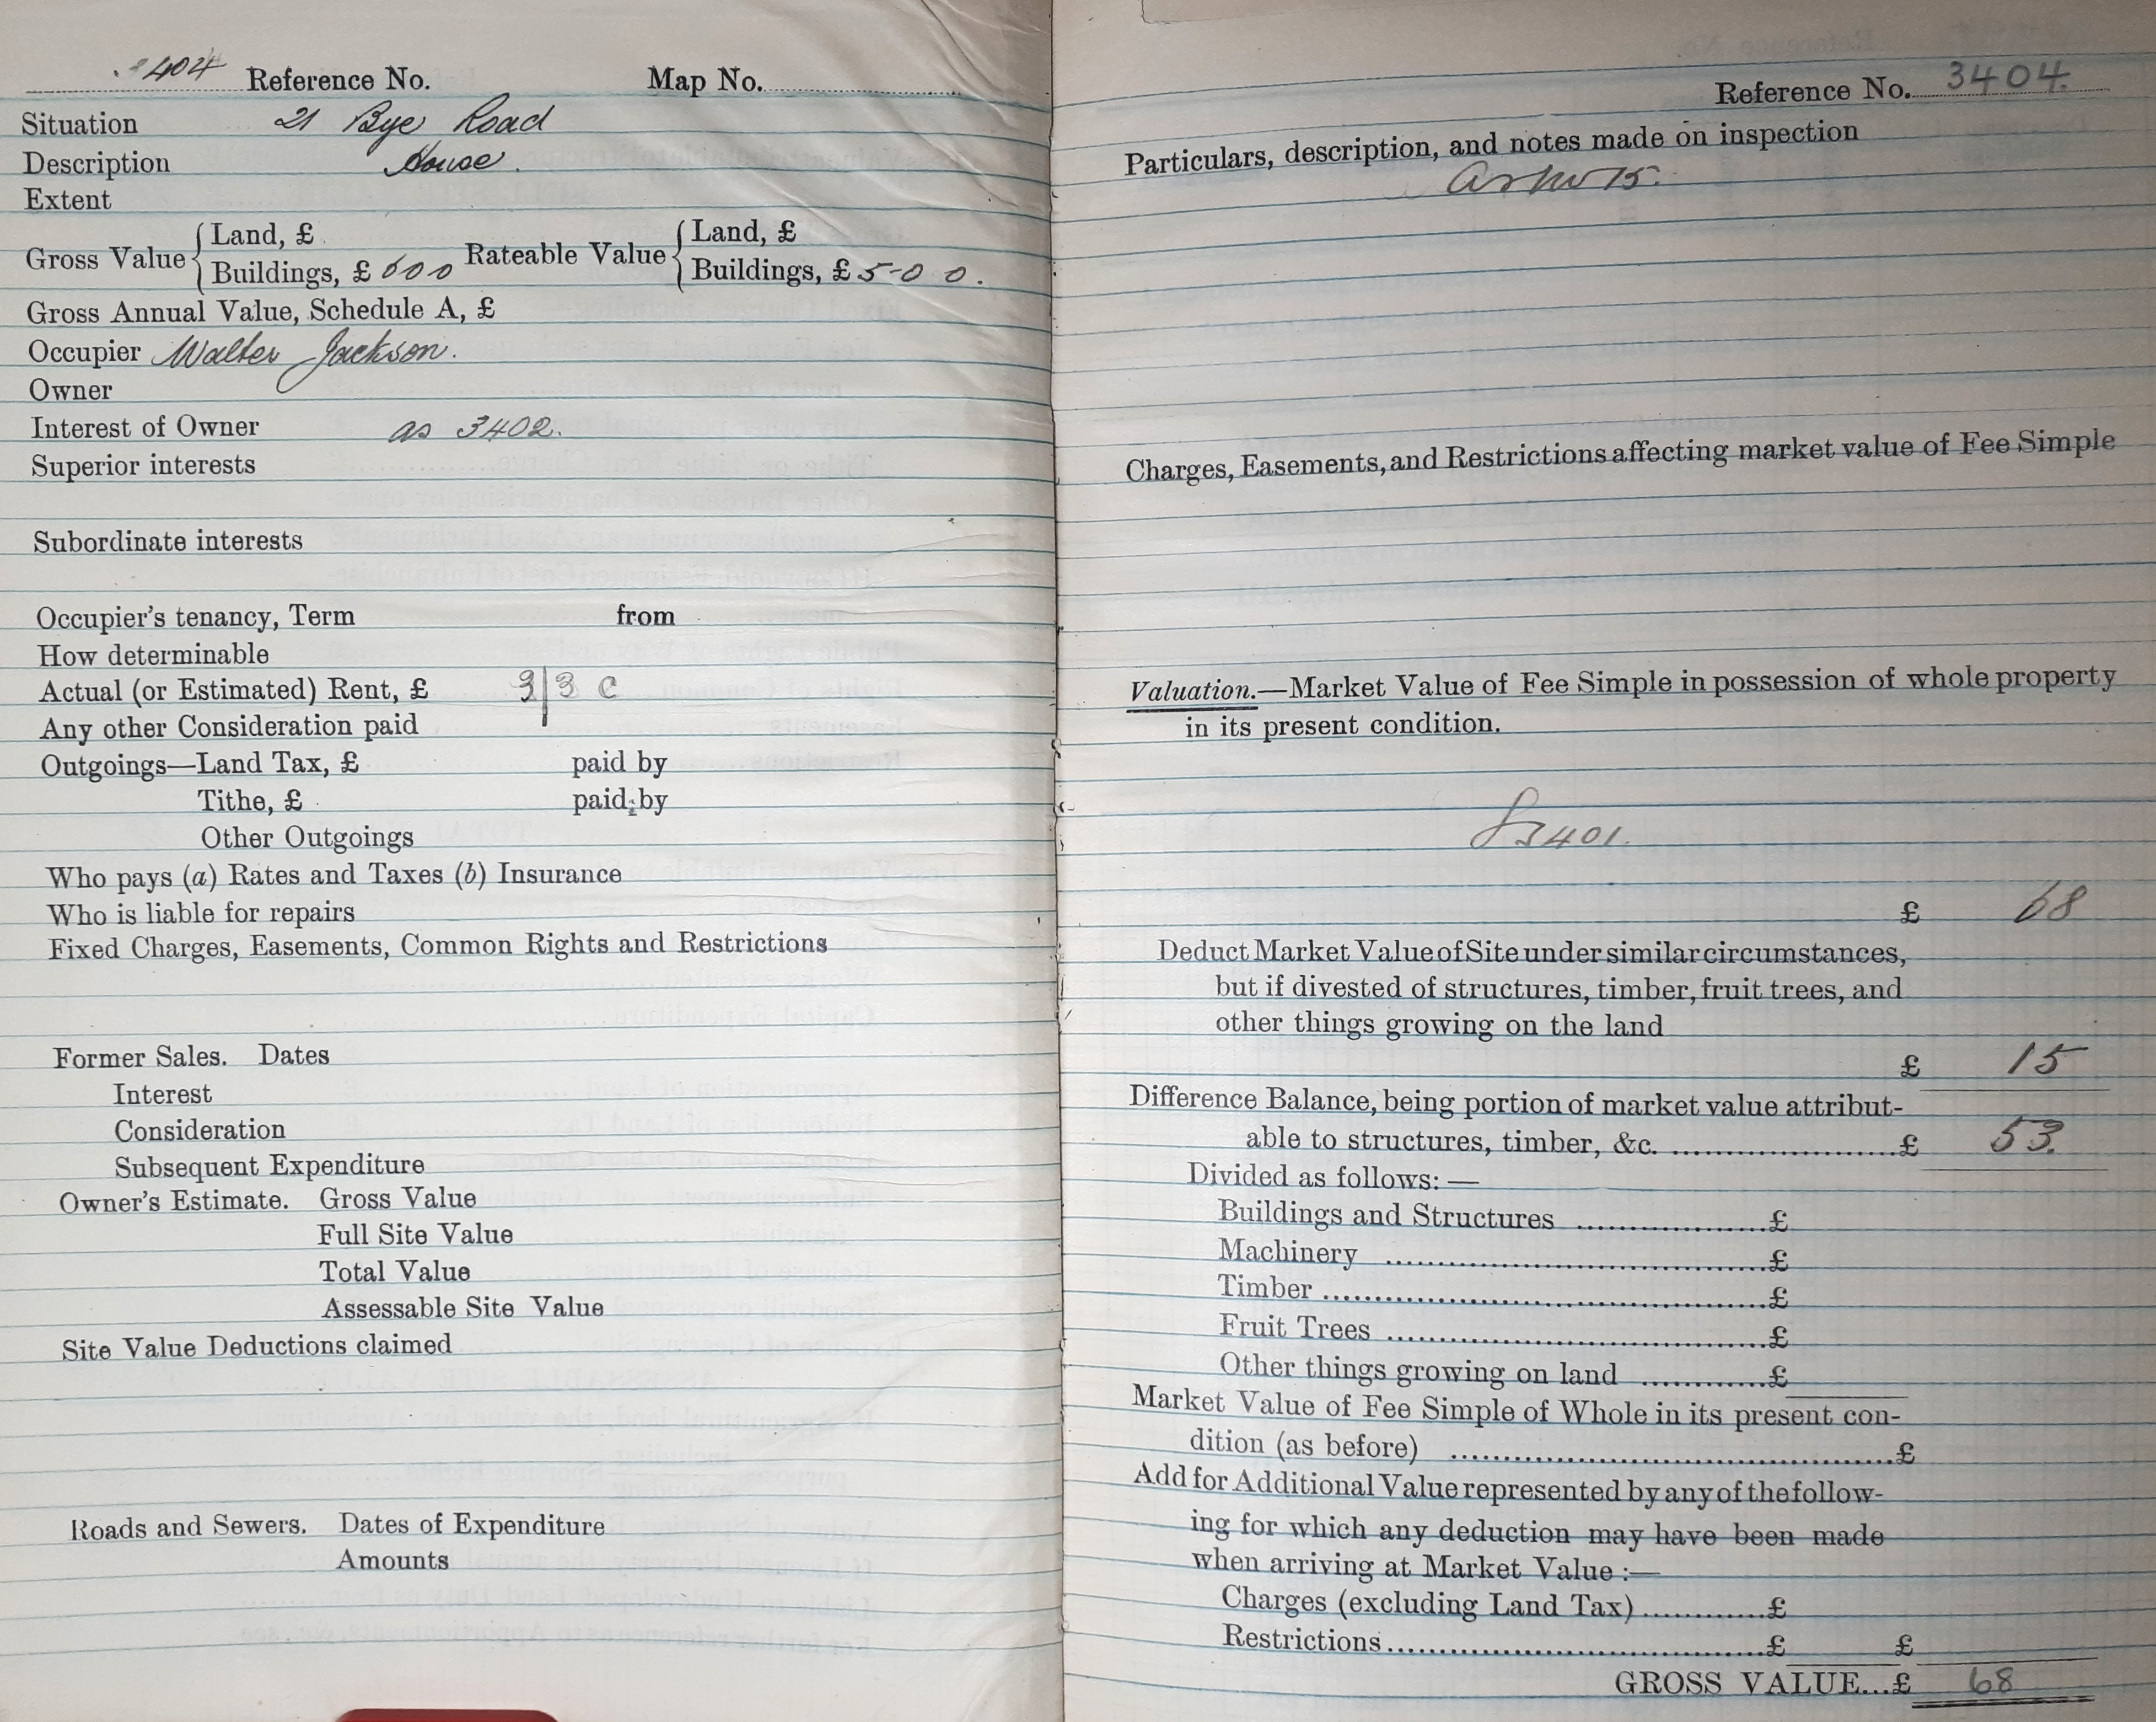 3404 Reference No. Map No.
Situation 21 Bye Road
Description House.
Extent
Gross Value { Land, £ Rateable Value { Land, £
Buildings, £ 6 0 0 Buildings, £ 5-0 0.
Gross Annual Value, Schedule A, £
Occupier Walter Jackson.
Owner
Interest of Owner as 3402.
Superior interests
Subordinate interests
Occupier's tenancy, Term from
How determinable
Actual (or Estimated) Rent, £
Any other Consideration paid
Outgoings—Land Tax, £ paid by
Tithe, £ paid by
Other Outgoings
Who pays (a) Rates and Taxes (b) Insurance
Who is liable for repairs
Fixed Charges, Easements, Common Rights and Restrictions
Former Sales. Dates
Interest
Consideration
Subsequent Expenditure
Owner's Estimate. Gross Value
Full Site Value
Total Value
Assessable Site Value
Site Value Deductions claimed
Roads and Sewers. Dates of Expenditure
Amounts
Reference No. 3404.
Particulars, description, and notes made on inspection
As No 15.
Charges, Easements, and Restrictions affecting market value of Fee Simple
Valuation.—Market Value of Fee Simple in possession of whole property
in its present condition.
3401.
£ 68
Deduct Market Value of Site under similar circumstances,
but if divested of structures, timber, fruit trees, and
other things growing on the land
£ 15
Difference Balance, being portion of market value attribut-
able to structures, timber, &c. £ 53.
Divided as follows:—
Buildings and Structures £
Machinery £
Timber £
Fruit Trees £
Other things growing on land £
Market Value of Fee Simple of Whole in its present con-
dition (as before) £
Add for Additional Value represented by any of the follow-
ing for which any deduction may have been made
when arriving at Market Value :—
Charges (excluding Land Tax) £
Restrictions £ £
GROSS VALUE...£ 68